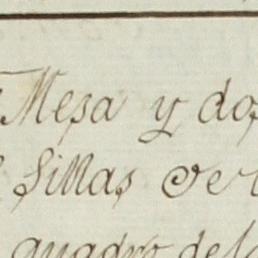 Mesa y dos
Sillas de
quadro de